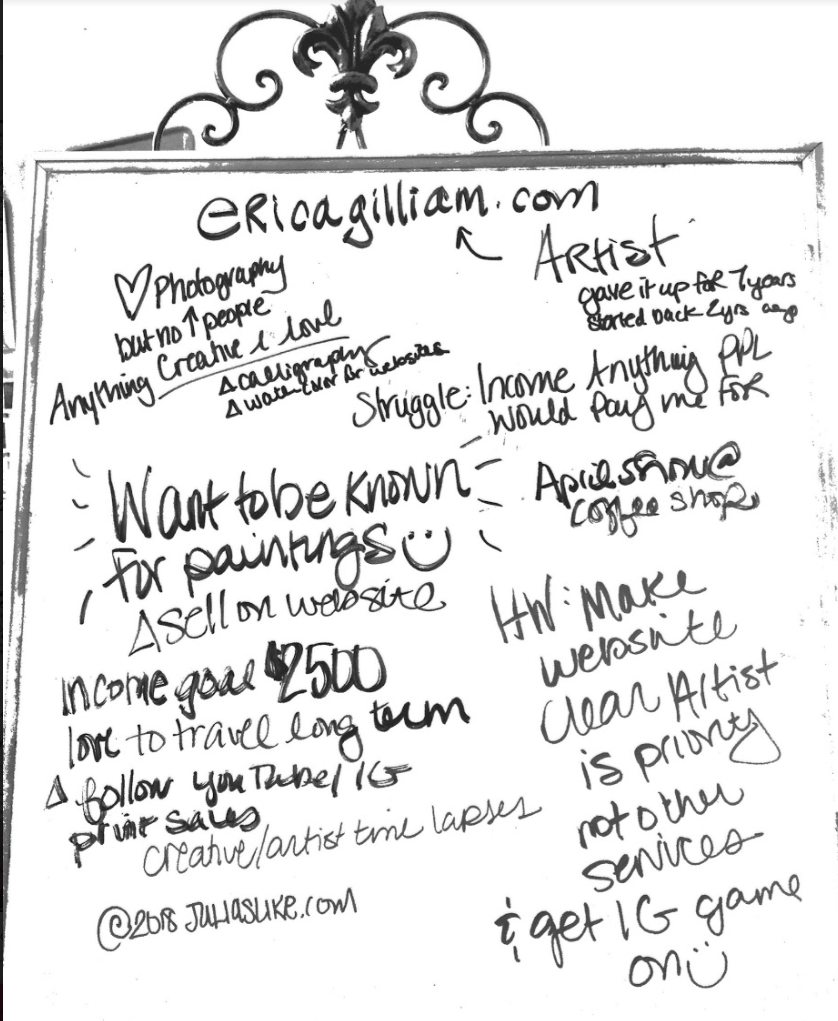 ericagilliam.com
♡ Photography
but no ↑ people
Anything Creative I love
Δ calligraphy
Δ watercolor for websites
Artist
gave it up for 7 years
started back 2yrs ago
Struggle: Income Anything PPL
would pay me for
Want to be known
for paintings
Δ sell on website
April show @
coffee shop
Income goal $2500
love to travel long term
Δ follow YouTube/IG
print sales
creative/artist time lapses
HW: Make
website
clear Artist
is priority
not other
services
& get IG game
on
@2018 JuliaSuke.com